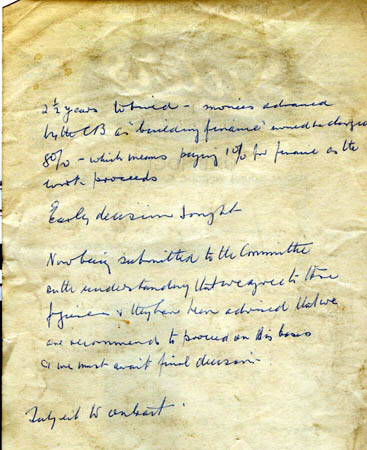 2½ years to build - monies advanced
by the CB as 'building finance' would be charged
8% - which means paying 1% for finance as the
work proceeds
Early decision sought
Now being submitted to the Committee
on the understanding that we agree to these
figures & they have been advised that we
are recommended to proceed on this basis
& we must await final decision.
Subject to contract.